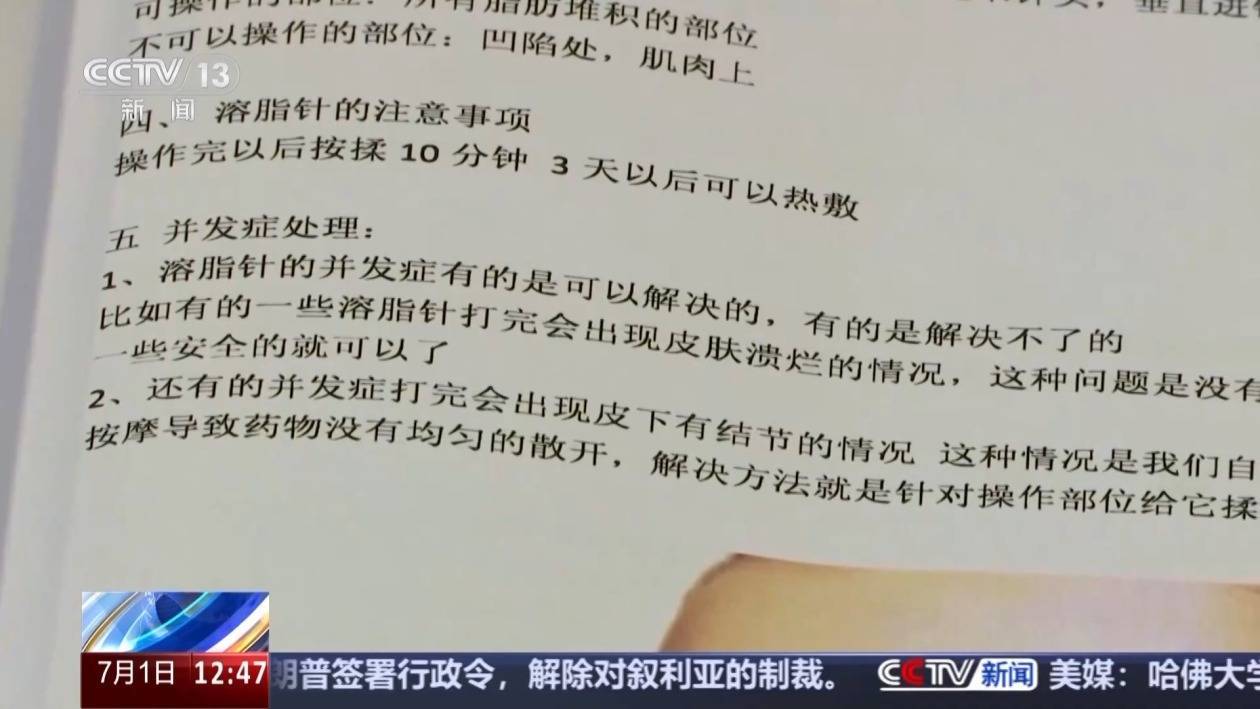 可操作的部位：所有脂肪堆积的部位
不可以操作的部位：凹陷处，肌肉上
四、溶脂针的注意事项
操作完以后按揉 10 分钟 3 天以后可以热敷
五 并发症处理：
1、溶脂针的并发症有的是可以解决的，有的是解决不了的
比如有的一些溶脂针打完会出现皮肤溃烂的情况，这种问题是没有
一些安全的就可以了
2、还有的并发症打完会出现皮下有结节的情况 这种情况是我们自
按摩导致药物没有均匀的散开，解决方法就是针对操作部位给它揉
CCTV 13
新闻
7月1日 12:47
朗普签署行政令，解除对叙利亚的制裁。 CCTV新闻 美媒：哈佛大学